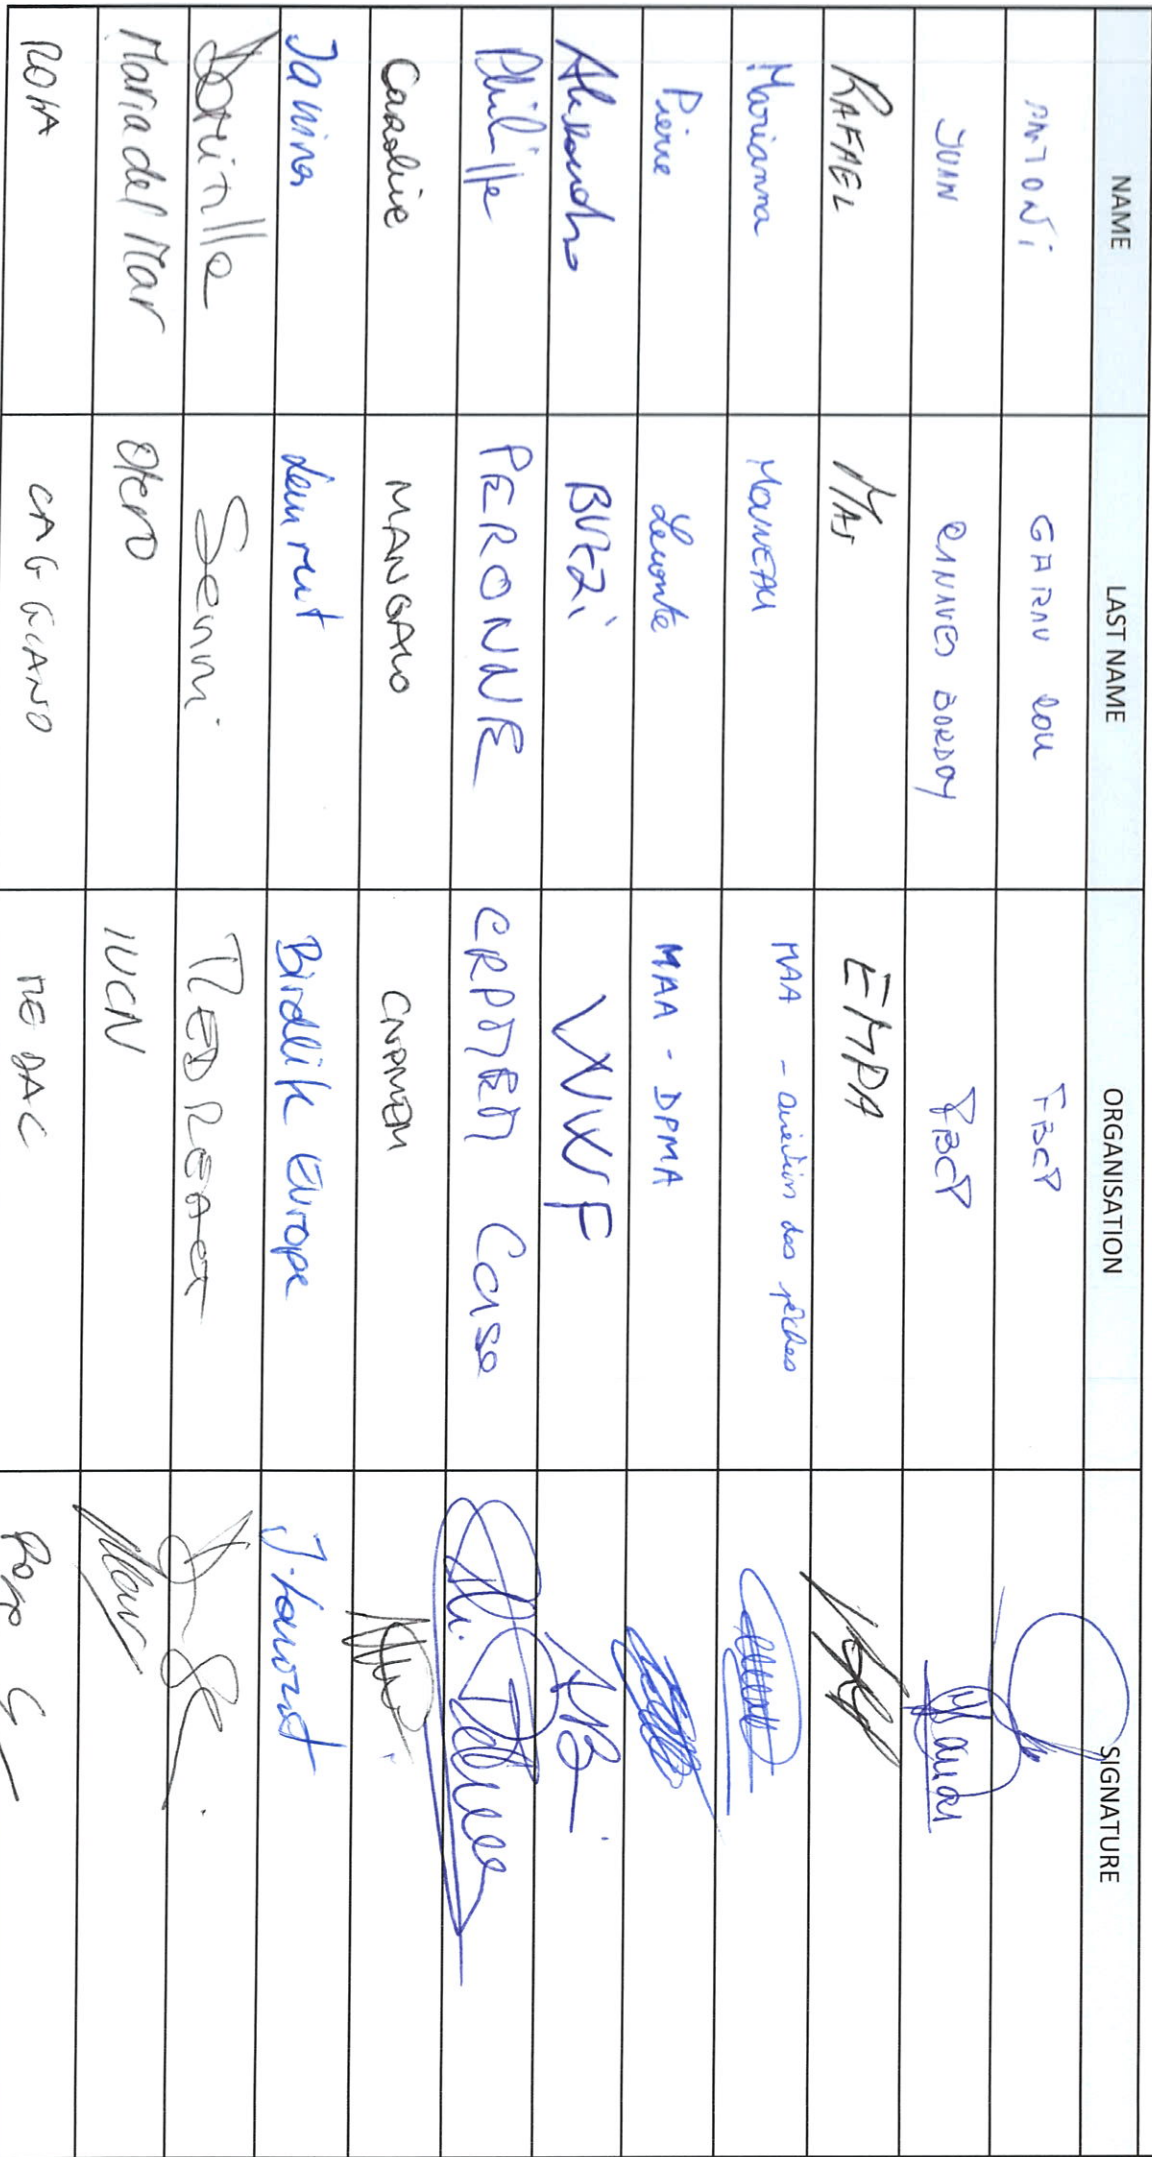 NAME LAST NAME ORGANISATION SIGNATURE
ANTONi GARAU COLL FBCP
JUAN CANAVES BORDOY FBCP
RAFAEL MAS EMPA
Marianna MONNEAU MAA - direction des pêches
Pierre Lecomte MAA - DPMA
Alessandro BUZZi WWF
Philippe PERONNE CRPMEM Corse
Caroline MANGALO CNPMEM
Janina Laurent Birdlife Europe J. Laurent
Domitilla Senni MEDREACT
Maria del Mar Otero IUCN Mar
ROSA CAGGIANO MEDAC Rosa C